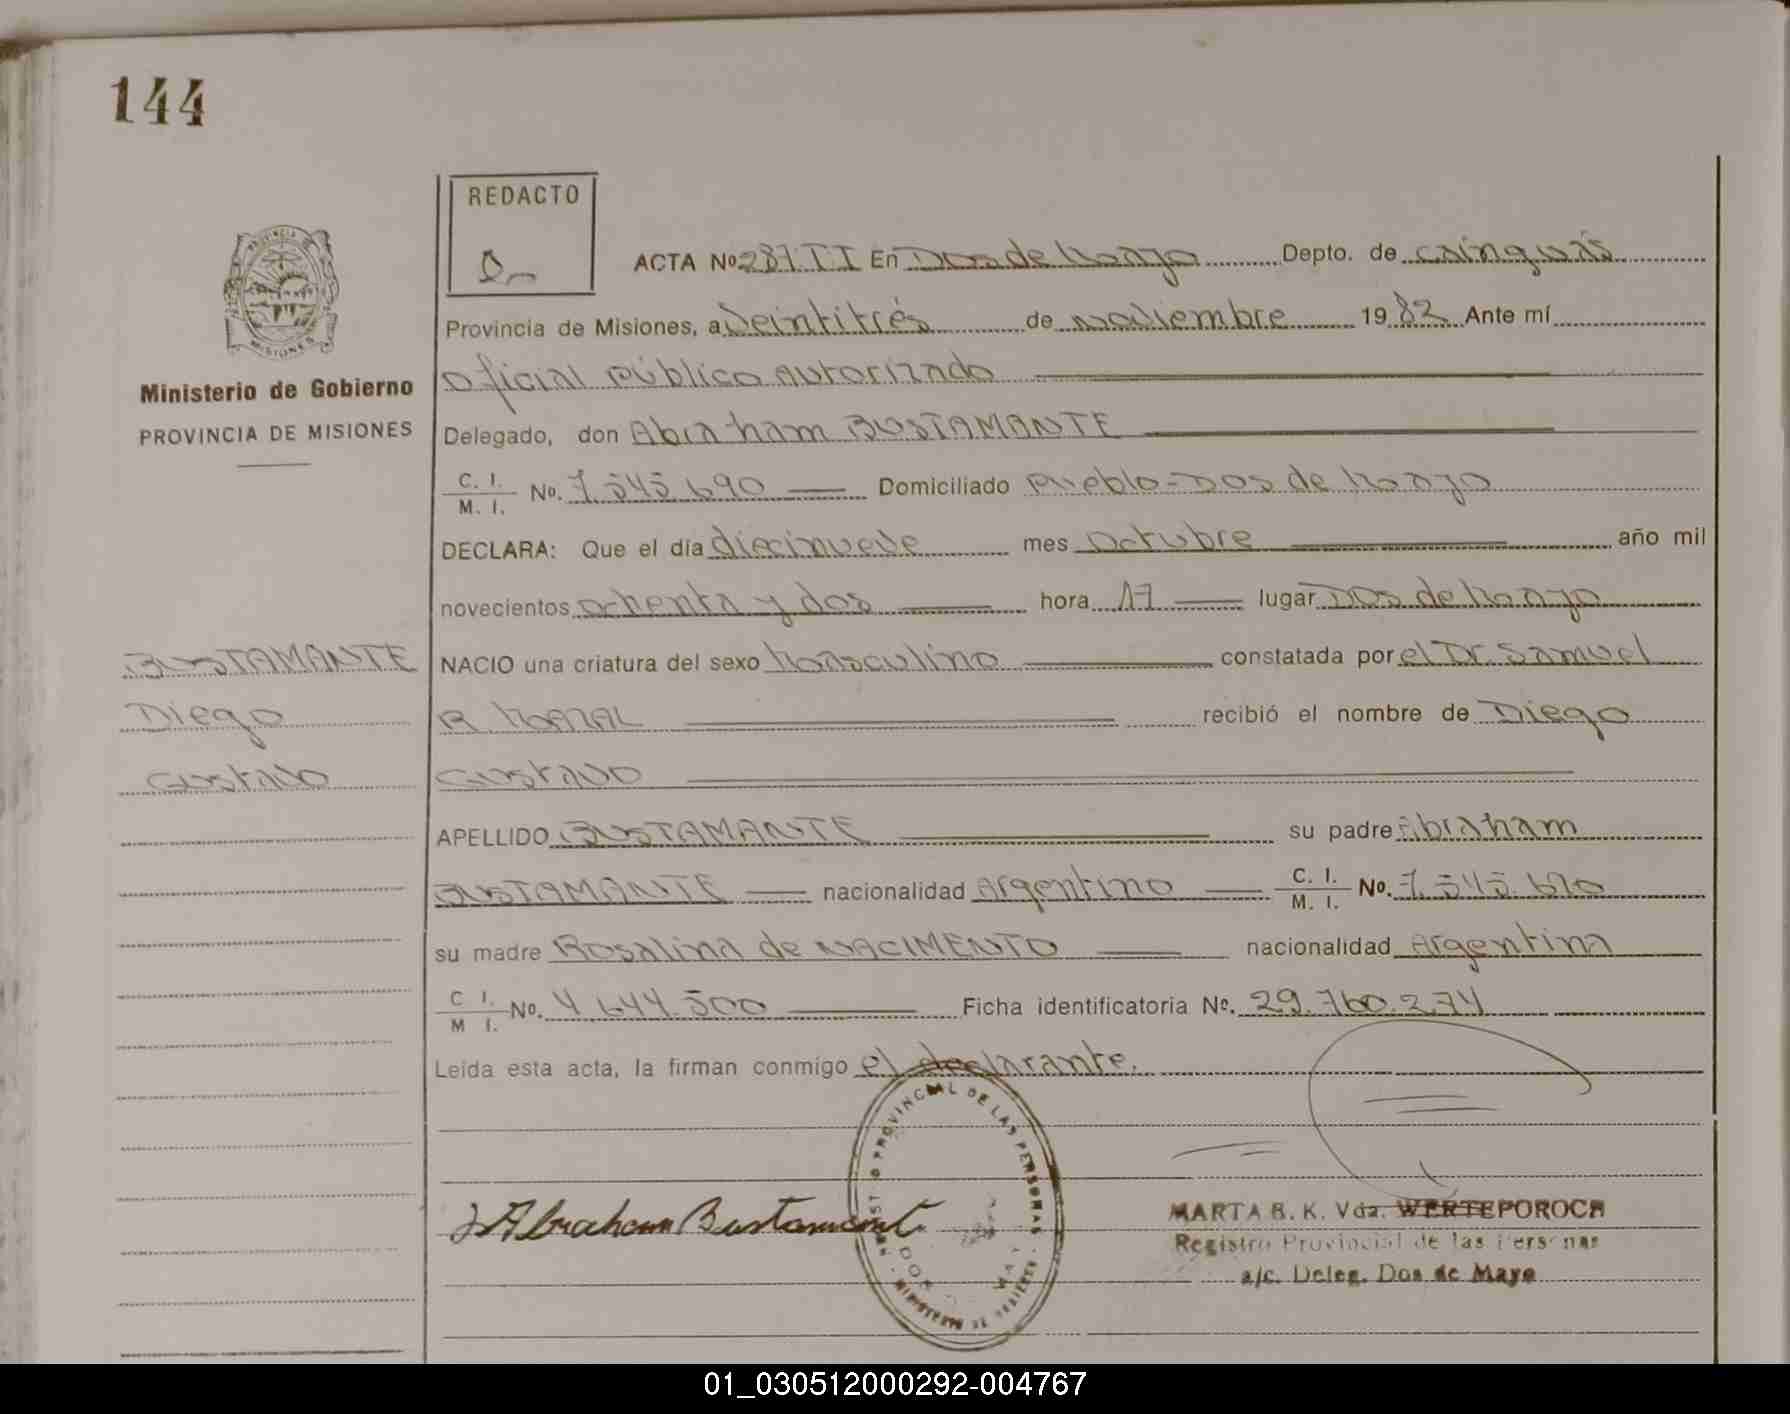 144
REDACTO
ACTA Nº 287.TI En Dos de Mayo Depto. de Cainguás
Provincia de Misiones, a Veintitrés de noviembre 1982 Ante mí
Oficial Público Autorizado
Ministerio de Gobierno
PROVINCIA DE MISIONES
Delegado, don Abraham BUSTAMANTE
C. I.
M. I. No. 7.545.690 Domiciliado Pueblo-Dos de Mayo
DECLARA: Que el día diecinueve mes Octubre año mil
novecientos ochenta y dos hora 17 lugar Dos de Mayo
BUSTAMANTE
Diego
Gustavo
NACIO una criatura del sexo Masculino constatada por el Dr. Samuel
R. recibió el nombre de Diego
Gustavo
APELLIDO BUSTAMANTE su padre Abraham
BUSTAMANTE nacionalidad Argentino C. I. M. I. No. 7.545.690
su madre Rosalina de NACIMENTO nacionalidad Argentina
C I.
M I. No. 4.644.500 Ficha identificatoria No. 29.760.274
Leída esta acta, la firman conmigo el declarante.
PROVINCIAL DE LAS PERSONAS
Abraham Bustamante
MARTA B. K. Vda. WERTEPOROCH
Registro Provincial de las Personas
a/c. Deleg. Dos de Mayo
01_030512000292-004767